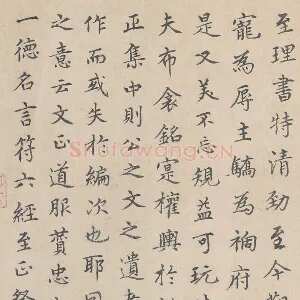 至理書特清勁至今
寵為辱主驕為禍府
是又美不忘規益可玩
夫布衾銘稟權輿於
正集中則公之文之遺
作而或失於編次也耶
之意云文正道服贊忠
一德名言符六經至正
Shufawang.cn